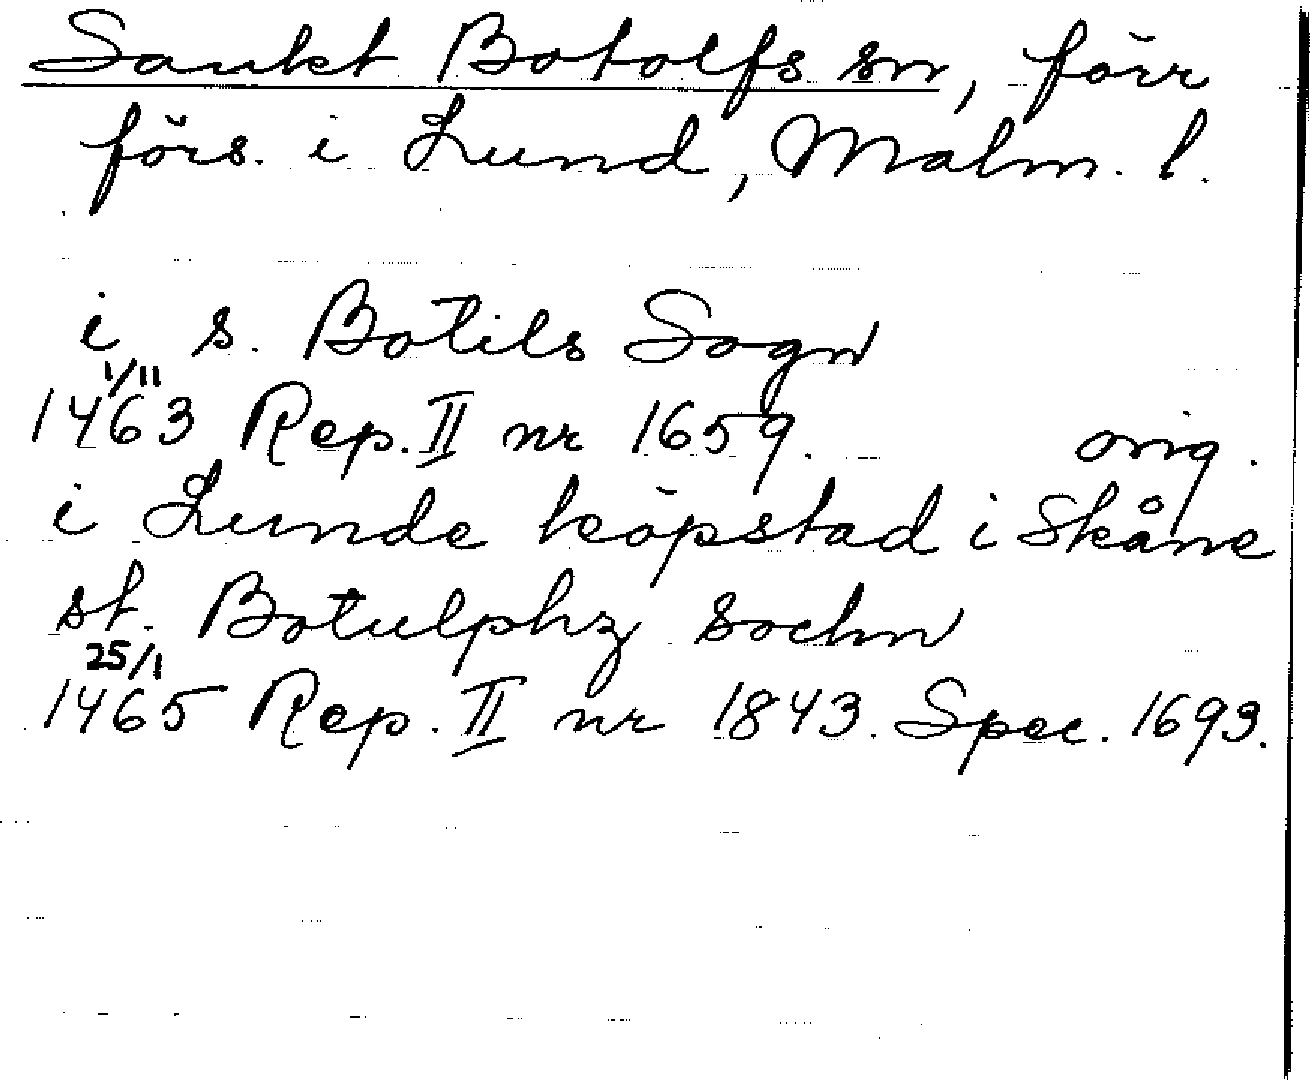 Sankt Botolfs sn, förr
förs. i Lund, Malm. l.
i s. Botils Sogn
1/11
1463 Rep. II nr 1659. orig.
i Lunde köpstad i Skåne
st. Botulphz sochn
25/1
1465 Rep. II nr 1843. Spec. 1693.